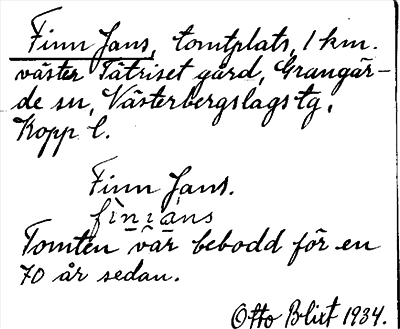 Finn Jans, tomtplats, 1 km.
väster Tätriset gård, Grangär-
de sn, Västerbergslags tg,
Kopp l.
Finn Jans.
finians
Tomten var bebodd för en
70 år sedan.
Otto Blixt 1934.